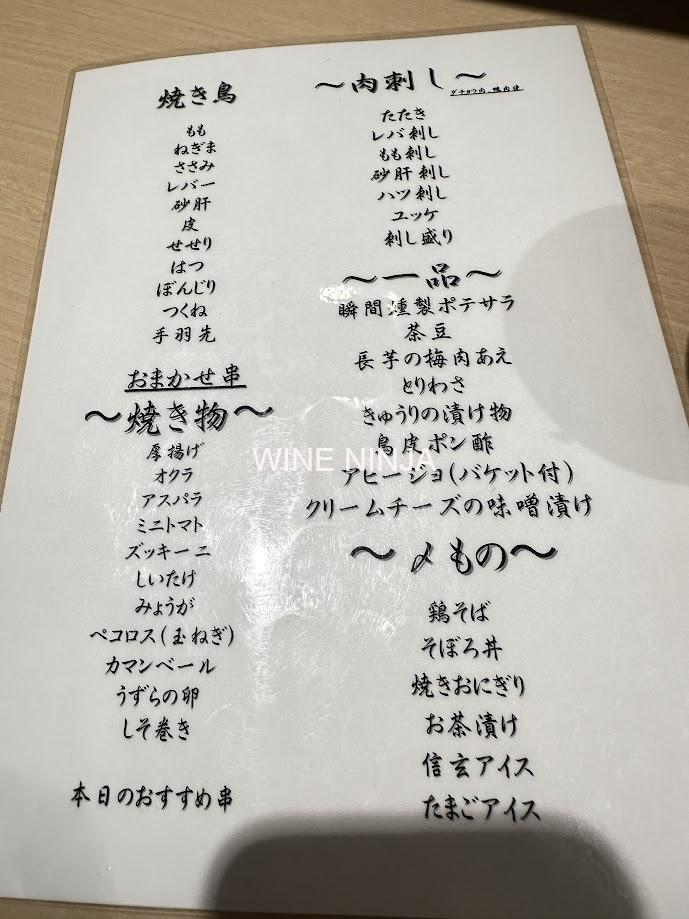 焼き鳥
もも
ねぎま
ささみ
レバー
砂肝
皮
せせり
はつ
ぼんじり
つくね
手羽先
おまかせ串
〜焼き物〜
厚揚げ
オクラ
アスパラ
ミニトマト
ズッキーニ
しいたけ
みょうが
ペコロス(玉ねぎ)
カマンベール
うずらの卵
しそ巻き
本日のおすすめ串
〜肉刺し〜
ダチョウ肉、鴨肉使
たたき
レバ刺し
もも刺し
砂肝刺し
ハツ刺し
ユッケ
刺し盛り
〜一品〜
瞬間燻製ポテサラ
茶豆
長芋の梅肉あえ
とりわさ
きゅうりの漬け物
鳥皮ポン酢
アヒージョ(バケット付)
クリームチーズの味噌漬け
〜〆もの〜
鶏そば
そぼろ丼
焼きおにぎり
お茶漬け
信玄アイス
たまごアイス
WINE NINJA